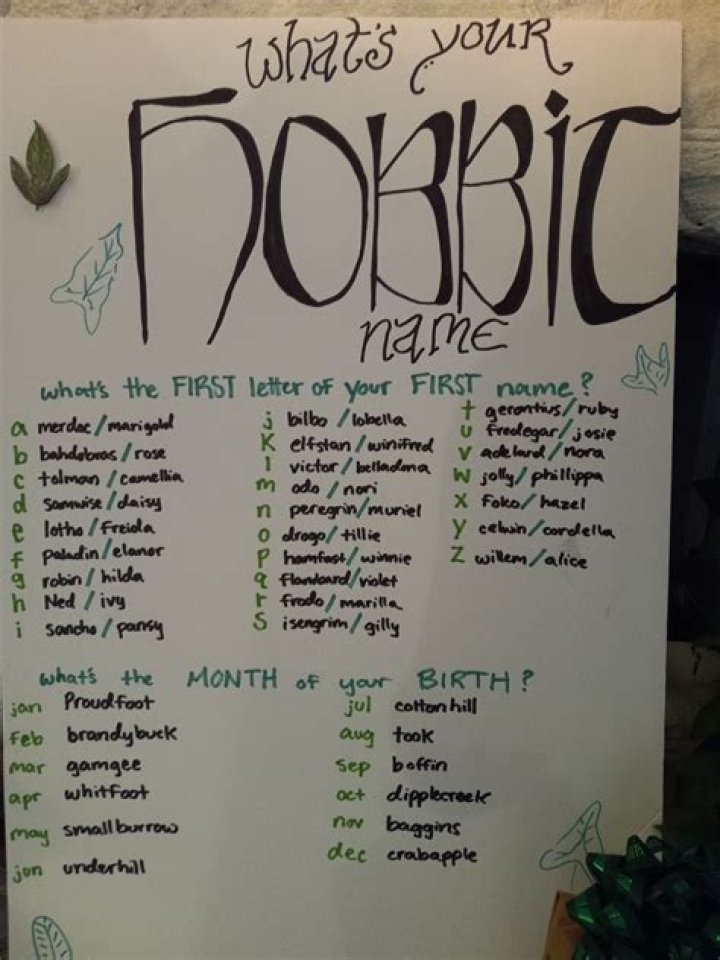 what's your
HOBBIT
name
what's the FIRST letter of your FIRST name?
a merdoc/marigold
b bandobras/rose
c tolman/camellia
d samwise/daisy
e lotho/freida
f paladin/elanor
g robin/hilda
h Ned/ivy
i sancho/pansy
j bilbo/lobella
K elfstan/winifred
l victor/belladona
m odo/nori
n peregrin/muriel
o drogo/tillie
p hamfast/winnie
q flambard/violet
r frodo/marilla
S isengrim/gilly
t gerontius/ruby
u fredegar/josie
v adelard/nora
w jolly/phillippa
x folko/hazel
y celwin/cordella
z willem/alice
what's the MONTH of your BIRTH?
jan Proudfoot
feb brandybuck
mar gamgee
apr whitfoot
may smallburrow
jun underhill
jul cottonhill
aug took
sep boffin
oct dipplecreek
nov baggins
dec crabapple